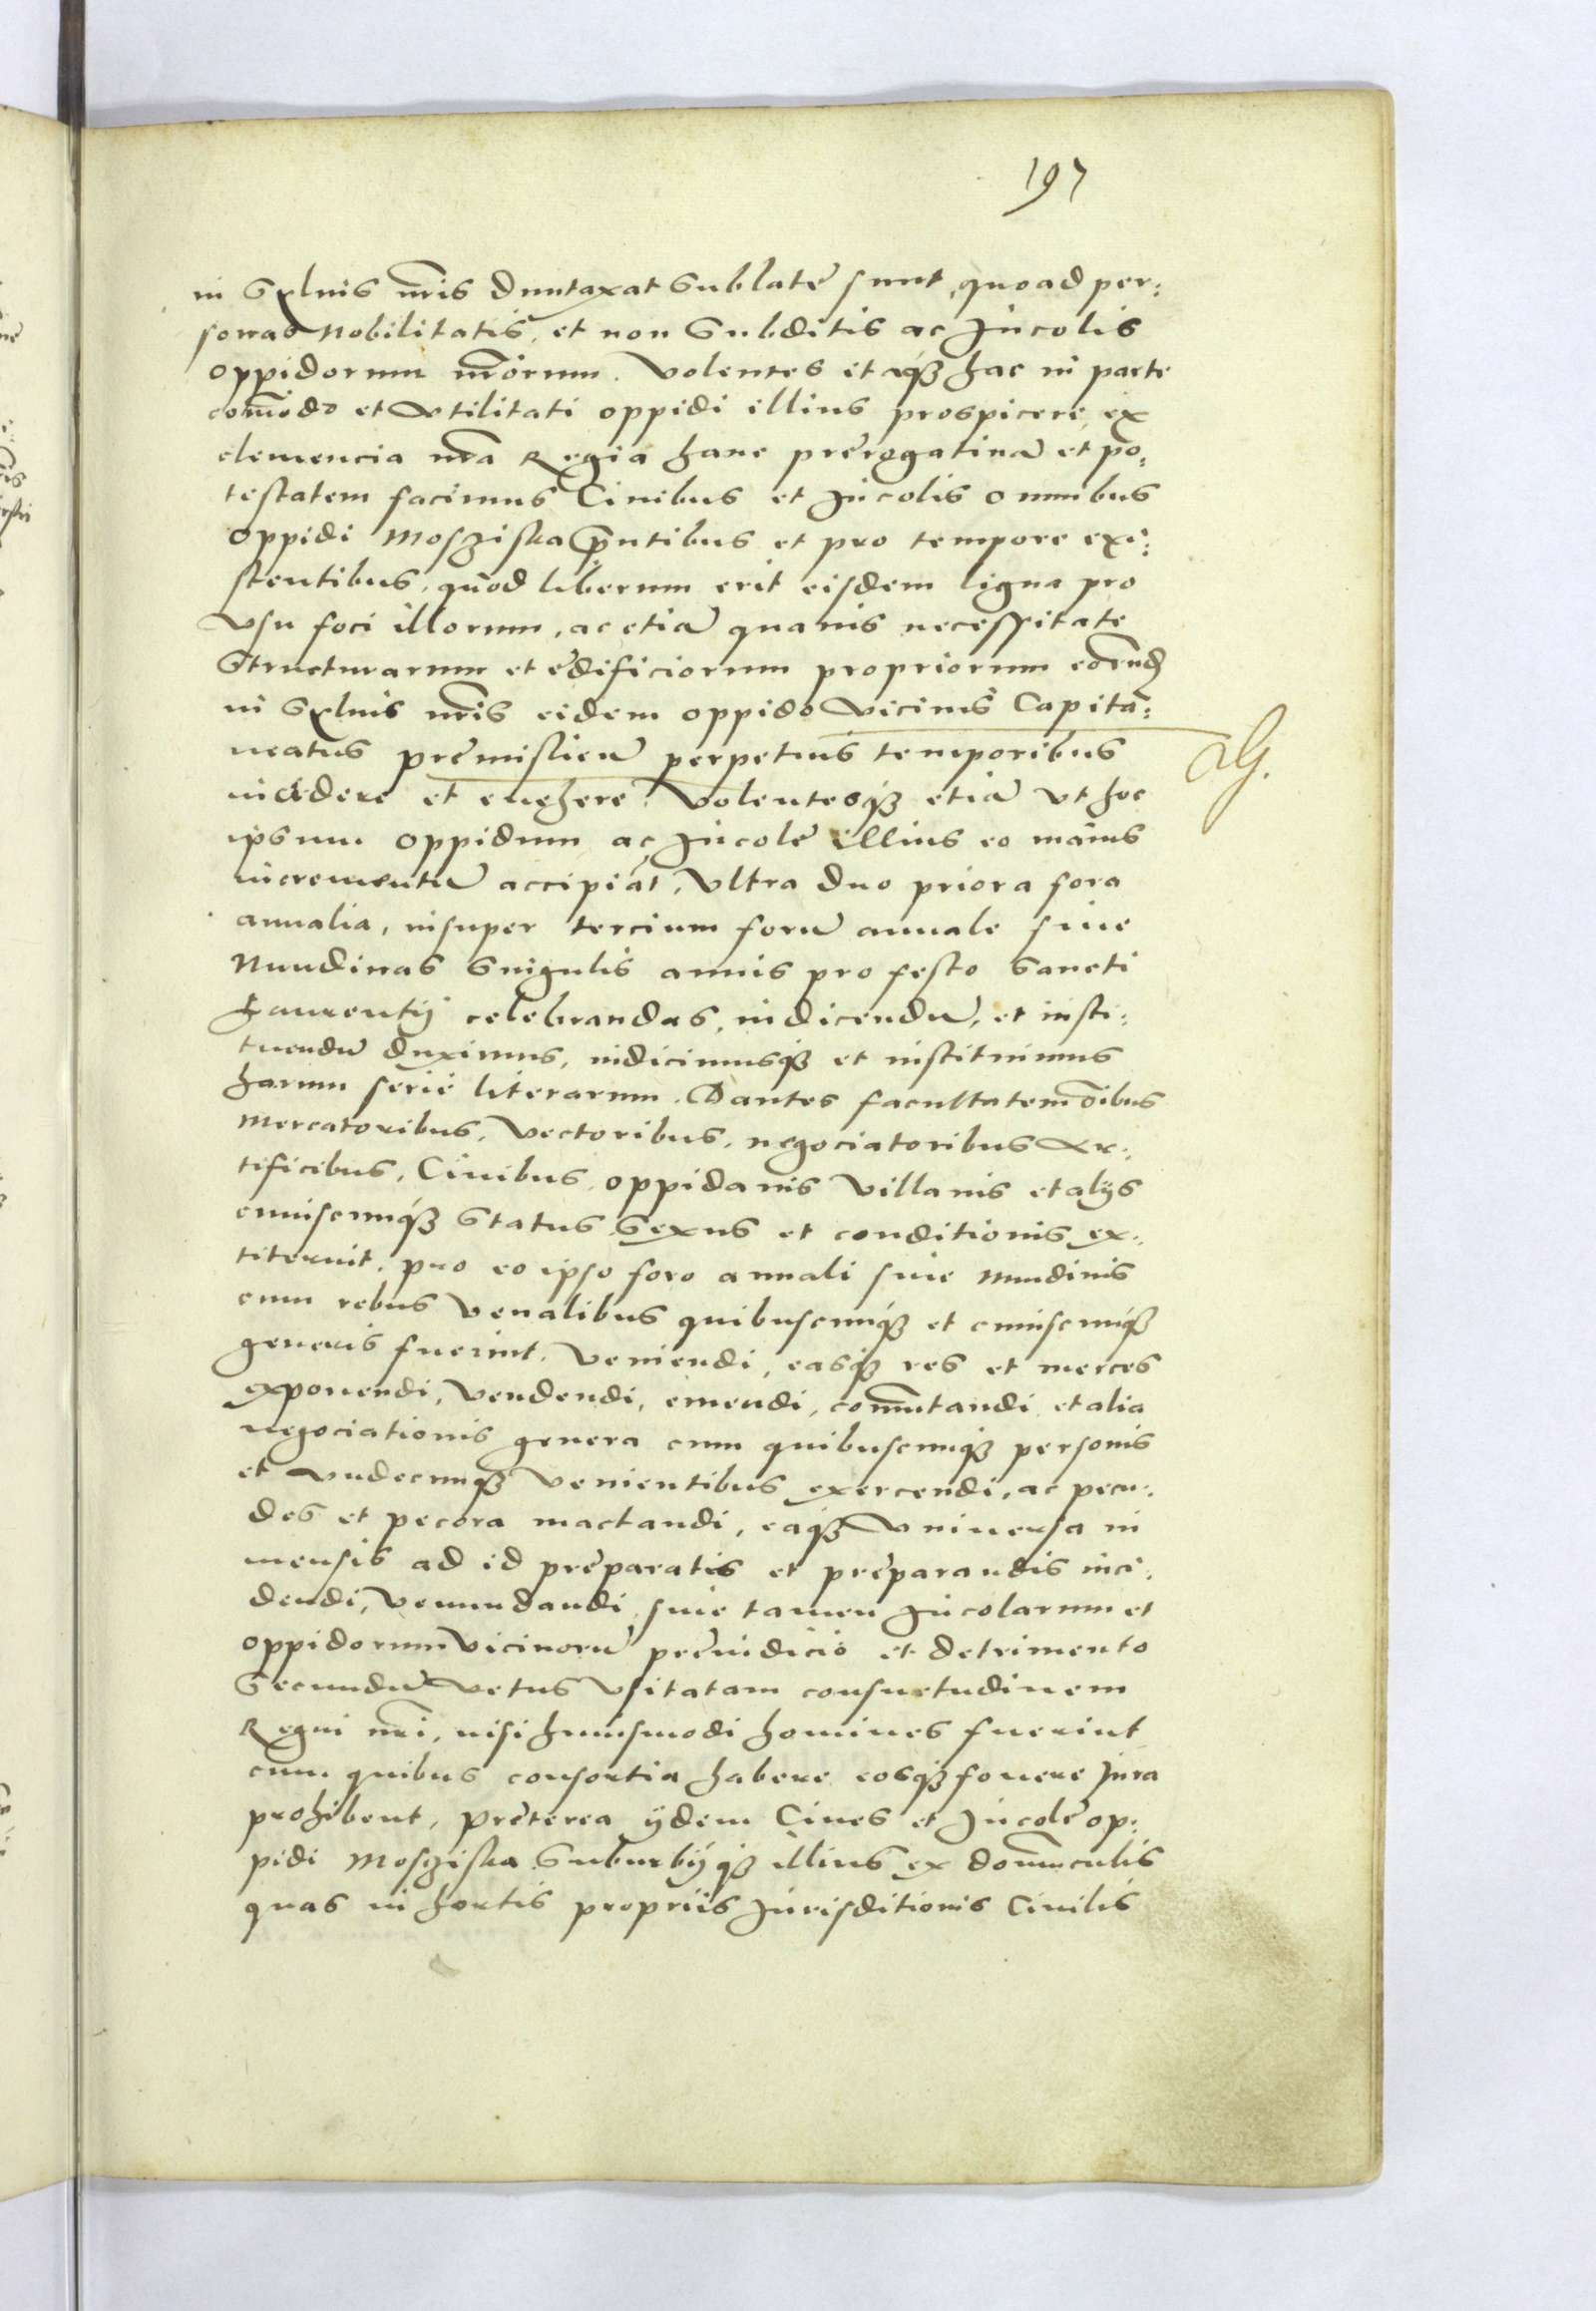 197
in Syluis nr̃is duntaxat sublatę sunt, quoad per:
sonas Nobilitatis, et non Subditis ac Incolis
oppidorum nr̃orum. Volentes itaq₃ hac in parte
com̃odo et vtilitati oppidi illius prospicere, ex
clemencia nr̃a Regia hanc pręrogatiuã et po:
testatem facimus Ciuibus et Incolis omnibus
oppidi Mosziska p̃ntibus et pro tempore exi:
stentibus, quod liberum erit eisdem ligna pro
vsu foci illorum, ac etiã quauis necessitate
Structurarum et ędificiorum propriorum eorund̃
in Syluis nr̃is eidem oppido vicinis Capita:
neatus pręmislien̄ perpetuis temporibus
incidere et euehere. Volentesq₃ etiã vt hoc
ipsum oppidum ac Incolę illius eo maius
incrementũ accipiãt, Vltra duo priora fora
annalia, insuper tercium forũ annale siue
Nundinas Singulis annis pro festo Sancti
Laurentij celebrandas, indicendũ, et insti:
tuendũ duximus, indicimusq₃ et instituimus
harum serie literarum. Dantes facultatem o͞ibus
Mercatoribus, Vectoribus, negociatoribus Ar:
tificibus, Ciuibus, oppidanis Villanis et alijs
cuiuscunq₃ Status Sexus et conditionis ex:
titerint, pro eo ipso foro annali siue Nundinis
cum rebus Venalibus quibuscunq₃ et cuiuscunq₃
generis fuerint, Veniendi, easq₃ res et merces
exponendi, Vendendi, emendi, com̃utandi et alia
negociationis genera cum quibuscunq₃ personis
et vndecunq₃ Venientibus exercendi, ac pecu:
des et pecora mactandi, eaq₃ vniuersa in
mensis ad id pręparatis et pręparandis inci:
dendi, Venundandi, sine tamen Incolarum et
oppidorum Vicinorũ pręiudicio et detrimento
Secundũ vetus Vsitatam consuetudinem
Regni nr̃i, nisi huiusmodi homines fuerint
cum quibus consortia habere eosq₃ fouere Jura
prohibent, pręterea ijdem Ciues et Incolę op:
pidi Mosziska Suburbijq₃ illius ex domunculis
quas in hortis propriis Jurisditionis Ciuilis